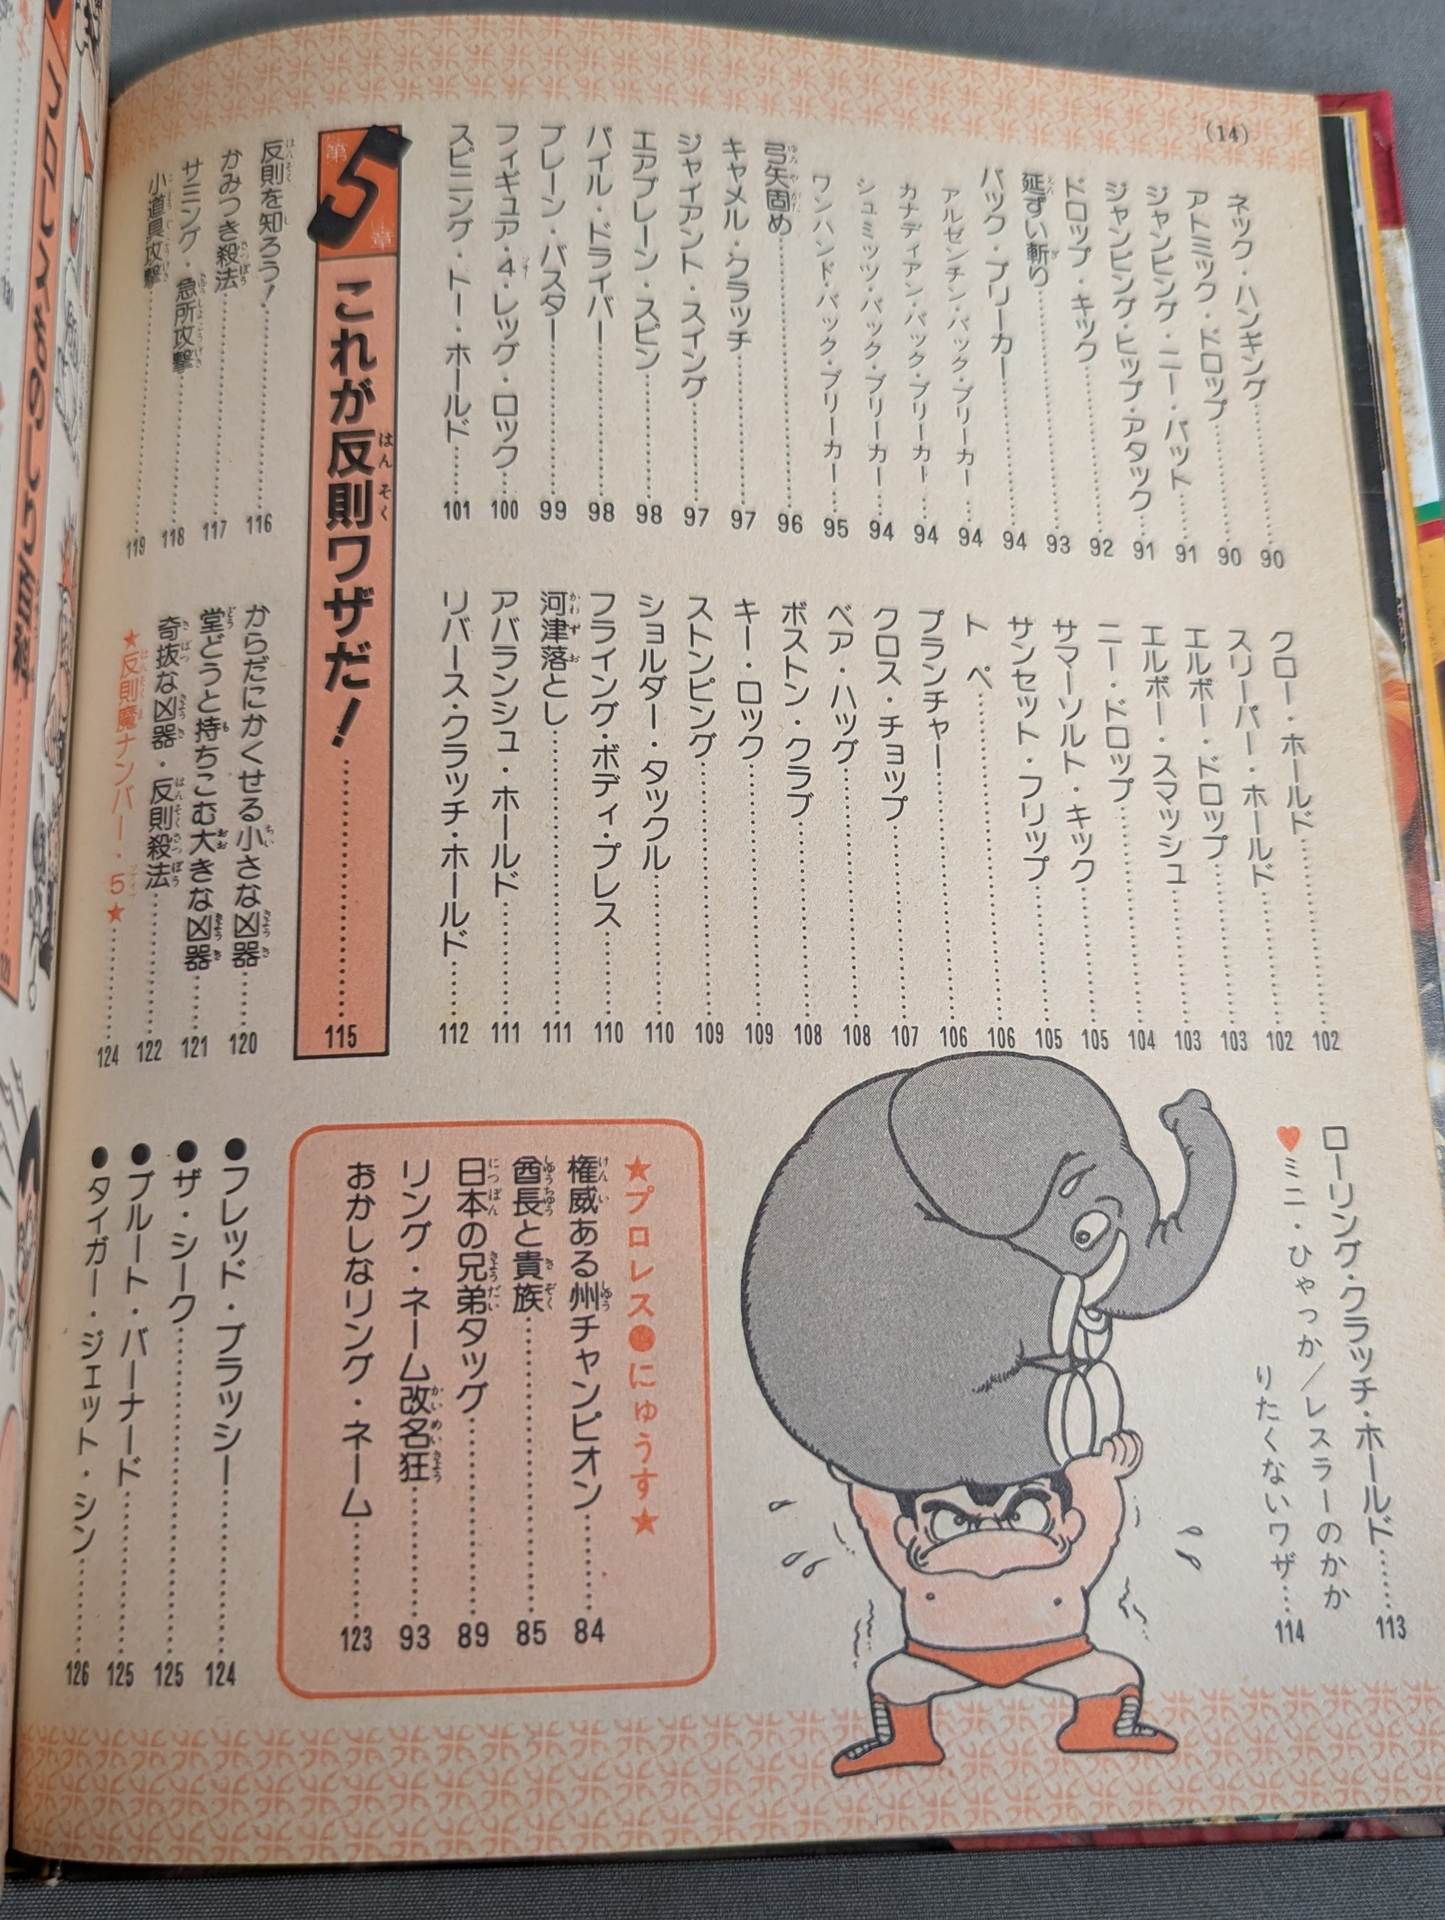 (14)
ネック・ハンキング……90
アトミック・ドロップ……90
ジャンピング・ニー・パット……91
ジャンピング・ヒップ・アタック……91
ドロップ・キック……92
延ずい斬り……93
バック・ブリーカー……94
アルゼンチン・バック・ブリーカー……94
カナディアン・バック・ブリーカー……94
シュミッツ・バック・ブリーカー……94
ワンハンド・バック・ブリーカー……95
弓矢固め……96
キャメル・クラッチ……97
ジャイアント・スイング……97
エアプレーン・スピン……98
パイル・ドライバー……98
ブレーン・バスター……99
フィギュア・4・レッグ・ロック……100
スピニング・トー・ホールド……101
クロー・ホールド……102
スリーパー・ホールド……102
エルボー・ドロップ……103
エルボー・スマッシュ……103
ニー・ドロップ……104
サマーソルト・キック……105
サンセット・フリップ……105
トペ……106
プランチャー……106
クロス・チョップ……107
ベア・ハッグ……108
ボストン・クラブ……108
キー・ロック……109
ストンピング……109
ショルダー・タックル……110
フライング・ボディ・プレス……110
河津落とし……111
アバランシュ・ホールド……111
リバース・クラッチ・ホールド……112
ローリング・クラッチ・ホールド……113
♥ミニ・ひゃっか/レスラーのかか
りたくないワザ……114
★プロレス●にゅうす★
権威ある州チャンピオン……84
酋長と貴族……85
日本の兄弟タッグ……89
リング・ネーム改名狂……93
おかしなリング・ネーム……123
第5章 これが反則ワザだ!……115
反則を知ろう!……116
かみつき殺法……117
サミング・急所攻撃……118
小道具攻撃……119
からだにかくせる小さな凶器……120
堂どうと持ちこむ大きな凶器……121
奇抜な凶器・反則殺法……122
★反則魔ナンバー・5★……124
●フレッド・ブラッシー……124
●ザ・シーク……125
●ブルート・バーナード……125
●タイガー・ジェット・シン……126